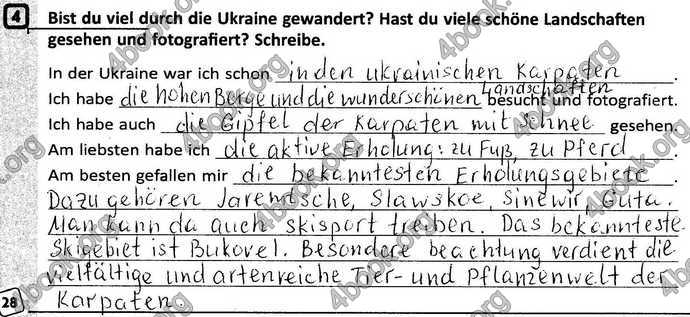 4 Bist du viel durch die Ukraine gewandert? Hast du viele schöne Landschaften
gesehen und fotografiert? Schreibe.
In der Ukraine war ich schon in den ukrainischen Karpaten.
Ich habe die hohen Berge und die wunderschönen Landschaften besucht und fotografiert.
Ich habe auch die Gipfel der Karpaten mit Schnee gesehen.
Am liebsten habe ich die aktive Erholung: zu Fuß, zu Pferd.
Am besten gefallen mir die bekanntesten Erholungsgebiete.
Dazu gehören Jaremtsche, Slawskoe, Sinewir, Guta.
Man kann da auch skisport treiben. Das bekannteste
Skigebiet ist Bukovel. Besondere beachtung verdient die
vielfältige und artenreiche Tier- und Pflanzenwelt der
28 Karpaten.
4book.org
4book.org
4book.org
4book.org
4book.org
4book.org